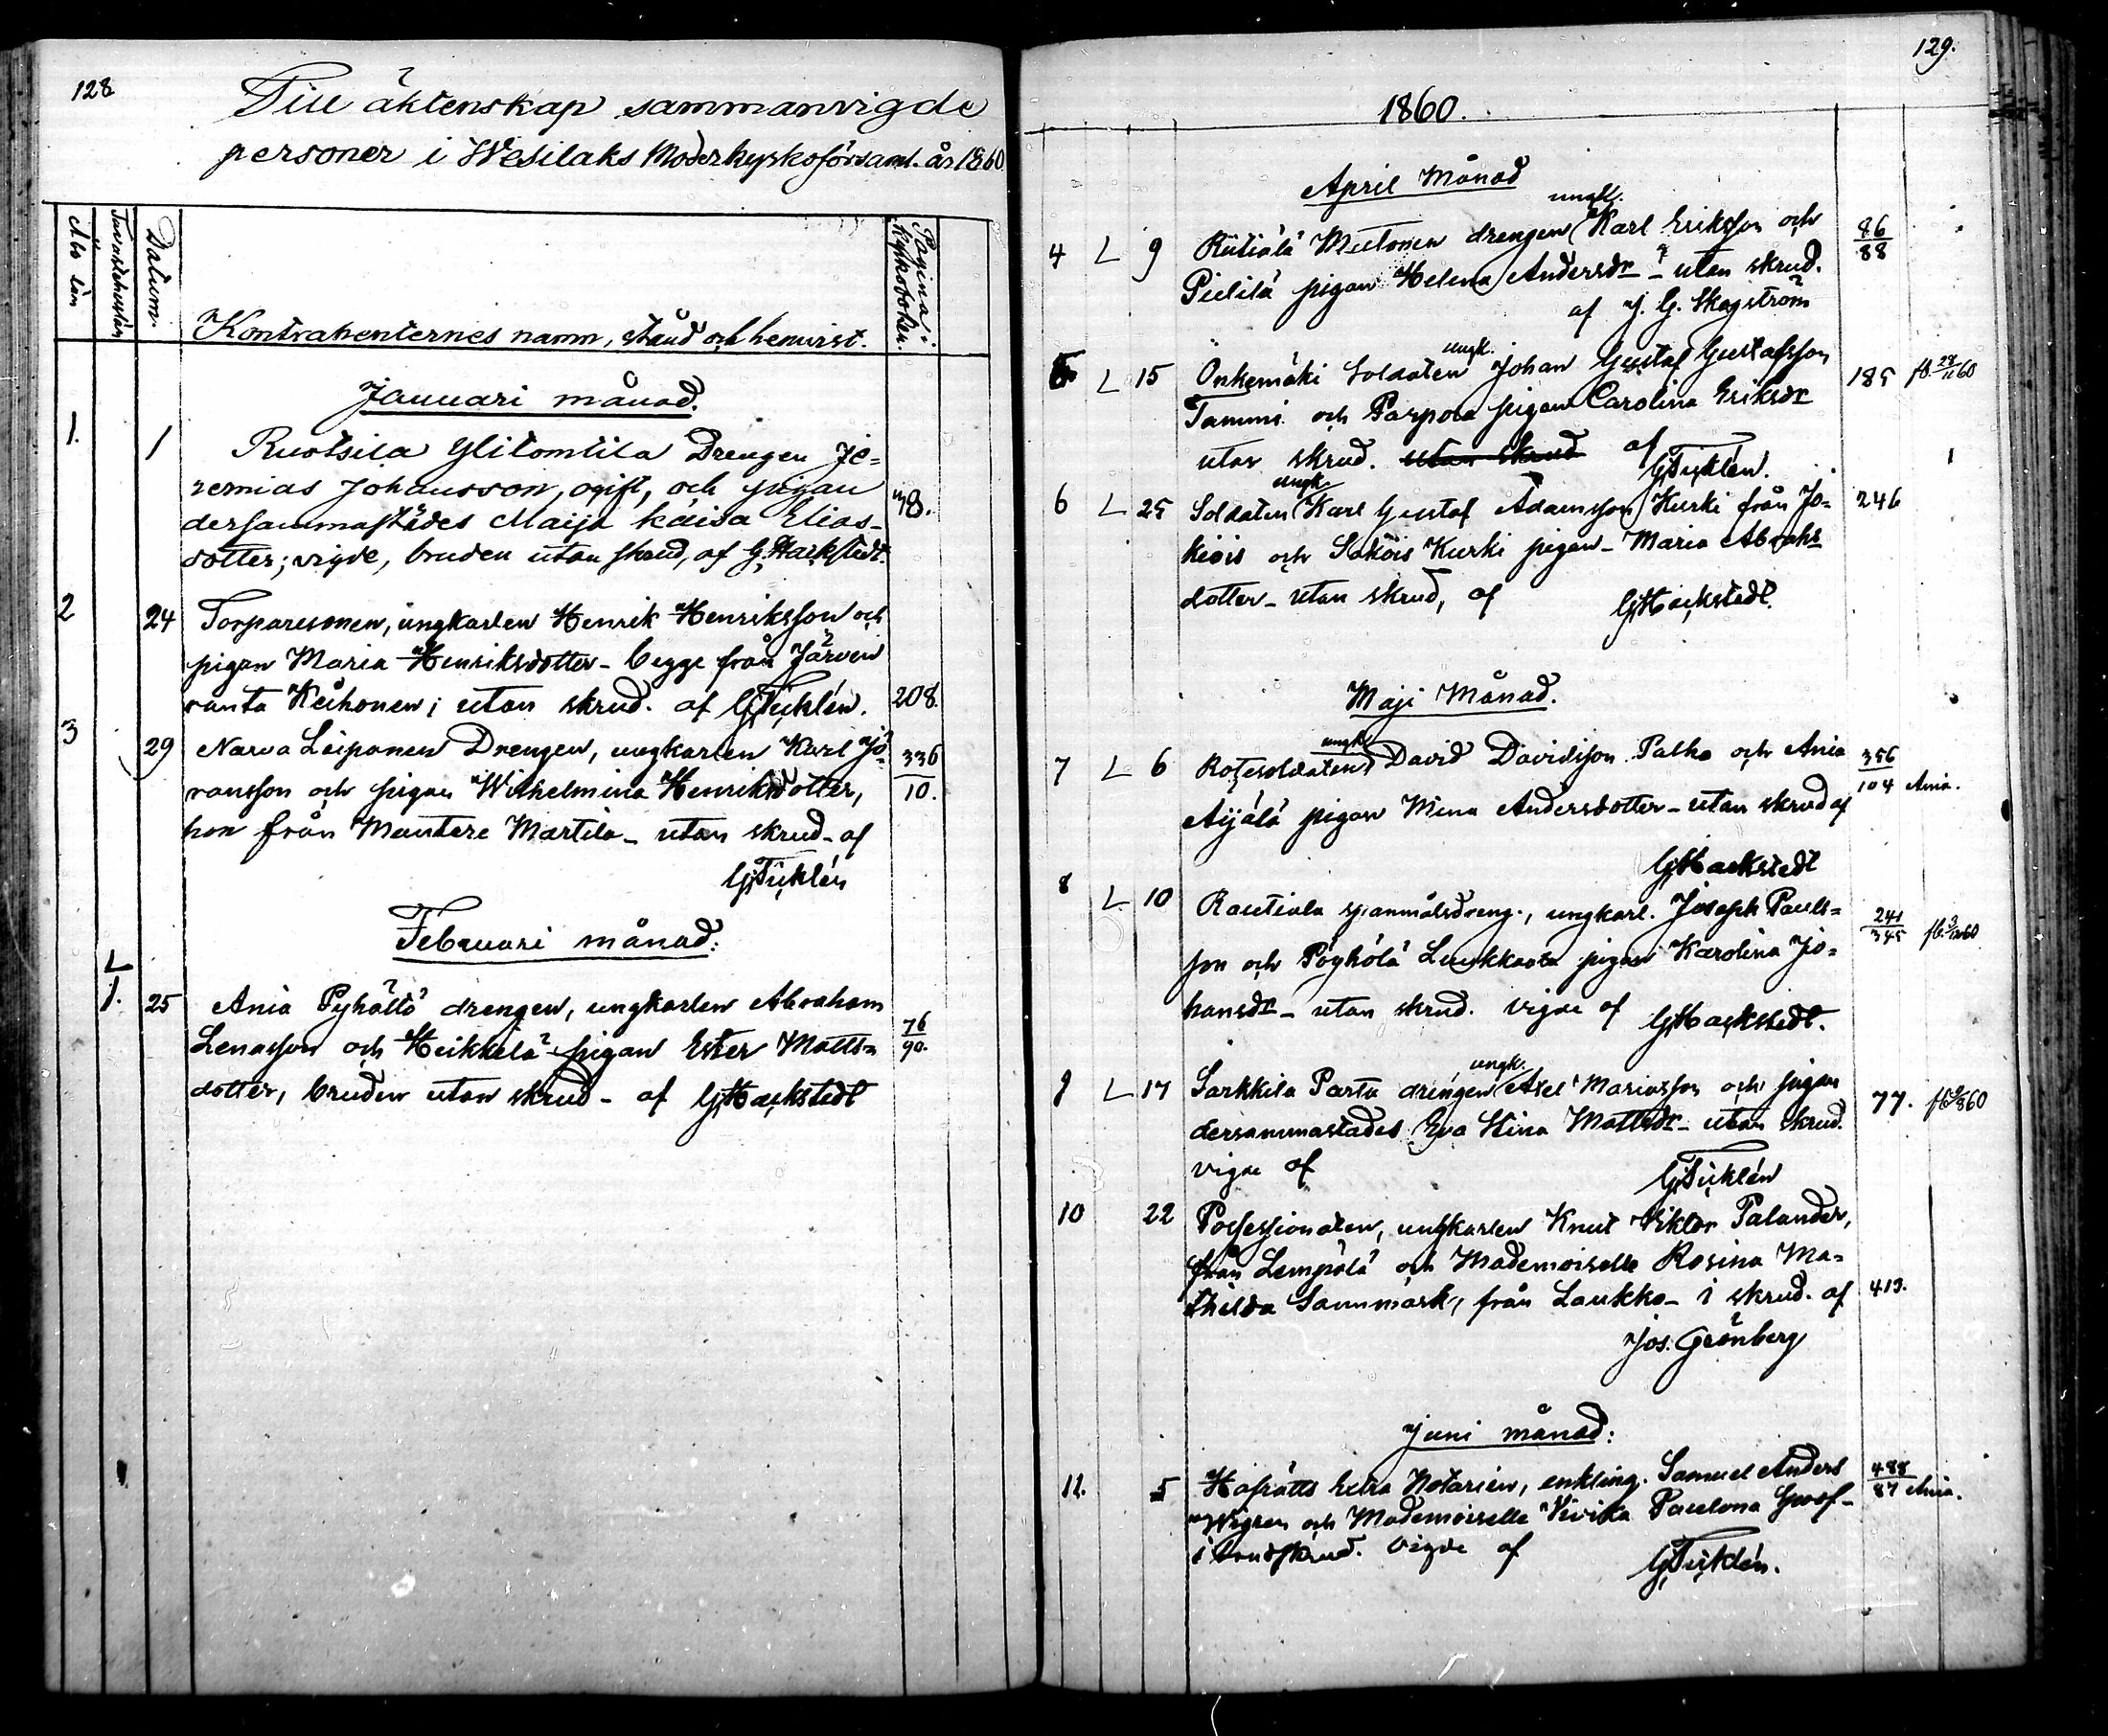 128
Till äktenskap sammanvigde
personer i Wesilaks Moderkyrkoförsaml. år 1860
Åbo län
Tavastehus län
Datum.
Kontrahenternes namn, stånd och hemvist.
Pagina i kyrkoboken.
Januari månad.
1. 1 Ruotsila Ylitomtila Drengen Je=
remias Johansson, ogift, och pigan
dersammastädes Maija Kaisa Elias-
dotter; vigde, bruden utan skrud, af G. Hackstedt.
2 24 Torparesonen, ungkarlen Henrik Henriksson och
pigan Maria Henriksdotter - begge från Järven
ranta Keihonen; utan skrud. af G. Ticklén. 208.
3 29 Narva Leiponen Drengen, ungkarlen Karl Jo- 336
hansson och pigan Wilhelmina Henriksdotter, 10.
hon från Mantere Martila - utan skrud - af
G. Ticklén
Februari månad:
L
1. 25 Ania Pyhältö drengen, ungkarlen Abraham 76
Lenasson och Heikkilä pigan Ester Matts= 90.
dotter, bruden utan skrud - af G. Hackstedt
129.
1860.
April Månad
ungk.
4 L 9 Riitiälä Mutonen drengen Karl Eriksson och 86
Pielilä pigan Helena Andersdr - utan skrud. 88
af J. G. Skogström
ungk.
5 L 15 Onkemäki Soldaten Johan Gustaf Gustafsson 185
Tammi och Parpola pigan Carolina Eriksdr
utan skrud. utan skrud af
G. Ticklén.
ungk.
6 L 25 Soldaten Karl Gustaf Adamsson Kurki från Jo= 246
kiois och Sakois Kurki pigan - Maria Abrahs
dotter - utan skrud, af G. Hackstedt.
Maji Månad.
ungk.
7 L 6 Rotesoldaten David Davidsson Palho och Ania 356
Äijälä pigan Mina Andersdotter - utan skrud af 104 Ania.
G. Hackstedt
8 L 10 Rautiala spanmålsdreng., ungkarl. Joseph Pauls= 241
son och Pöyhölä Luukkaala pigan Karolina Jo= 345
hansdr - utan skrud. vigde af G. Hackstedt.
ungk.
9 L 17 Sarkkila Parta drengen Axel Mariasson och pigan 77.
dersammastades Eva Stina Mattsdr - utan skrud.
vigde af G. Ticklén
10 22 Possessionaten, ungkarlen Knut Viktor Palander,
från Lempälä och Mademoiselle Rosina Ma=
thilda Sammark, från Laukko - i skrud. af 413.
Jos. Grönberg
Juni månad:
11. 5 Hofrätts Extra Notarien, enkling. Samuel Anders 488
Wigren och Mademoiselle Vivika Paulina Groof - 87 Ania.
i brudskrud. vigde af G. Ticklén.